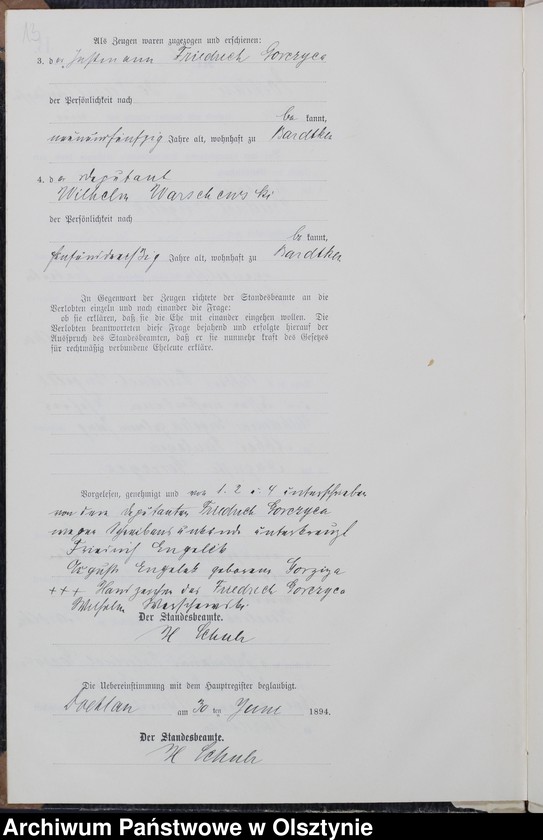 Als Zeugen waren zugezogen und erschienen:
3. der Instmann Friedrich Gorczyca
der Persönlichkeit nach
be kannt,
neunundfünfzig Jahre alt, wohnhaft zu Bardtken
4. der Deputant
Wilhelm Warschewski
der Persönlichkeit nach
be kannt,
fünfunddreißig Jahre alt, wohnhaft zu Bardtken
In Gegenwart der Zeugen richtete der Standesbeamte an die
Verlobten einzeln und nach einander die Frage:
ob sie erklären, daß sie die Ehe mit einander eingehen wollen. Die
Verlobten beantworteten diese Frage bejahend und erfolgte hierauf der
Ausspruch des Standesbeamten, daß er sie nunmehr kraft des Gesetzes
für rechtmäßig verbundene Eheleute erkläre.
Vorgelesen, genehmigt und von 1. 2 u. 4 unterschrieben
von dem Deputanten Friedrich Gorczyca
wegen Schreibensunkunde unterkreuzt
Friedrich Engelek
Auguste Engelek geborene Gorziza
+++ Handzeichen des Friedrich Gorczyca
Wilhelm Warschewski
Der Standesbeamte.
H Schulz
Die Uebereinstimmung mit dem Hauptregister beglaubigt.
Doehlau am 30 ten Juni 1894.
Der Standesbeamte.
H Schulz
Archiwum Państwowe w Olsztynie